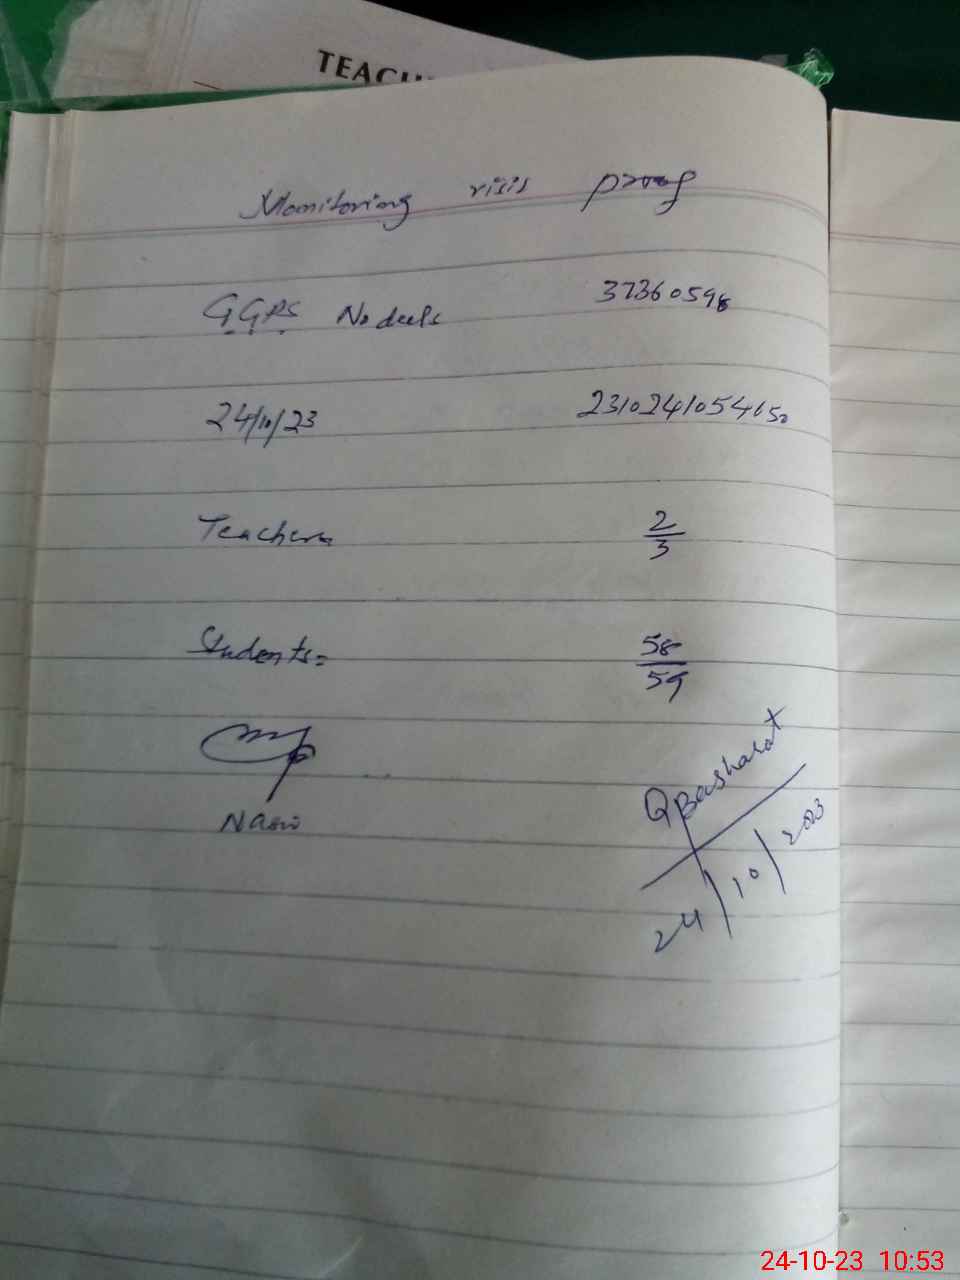 TEACH
Monitoring visit proof
GGPS Nodeels 37360598
24/10/23 231024105450
Teachers 2/3
Students = 58/59
QBasharat
24/10/2023
24-10-23 10:53